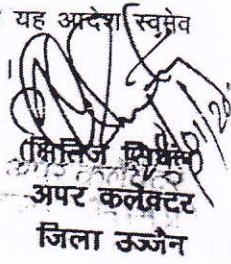 यह आदेश स्वमेव
(क्षितिज सिंघल)
अपर कलेक्टर
जिला उज्जैन